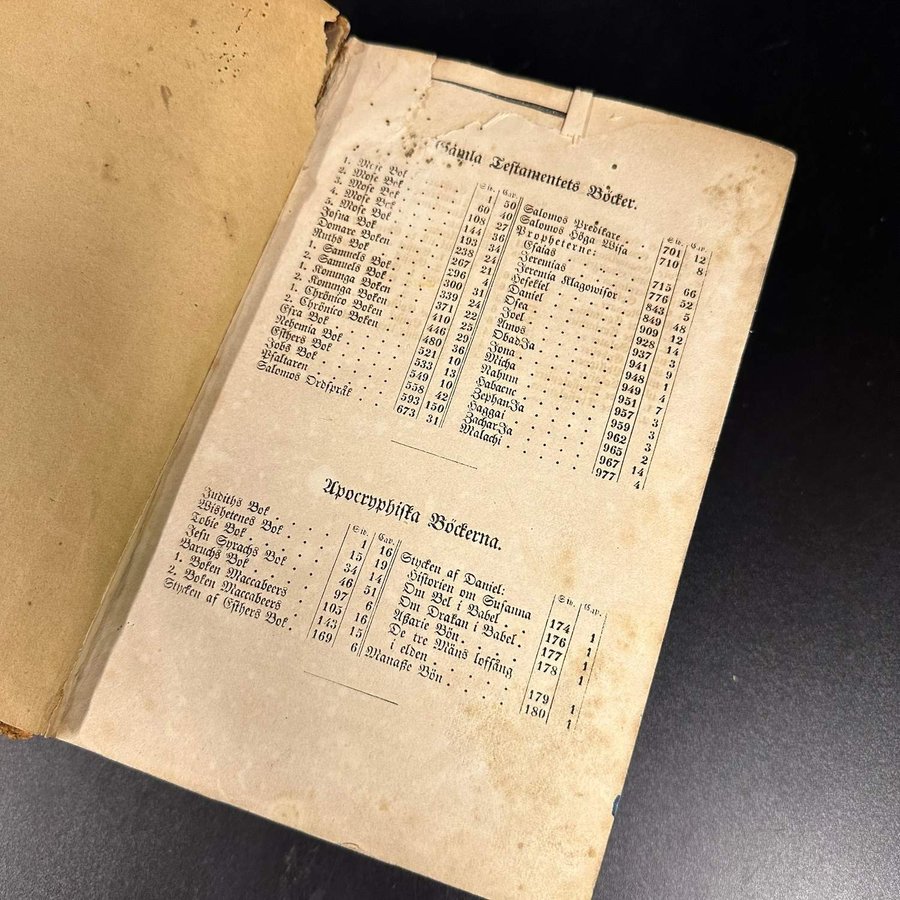 Gamla Testamentets Böcker.
Sid. Cap.
1. Mose Bok . . . 1 50
2. Mose Bok . . . 60 40
3. Mose Bok . . . 108 27
4. Mose Bok . . . 144 36
5. Mose Bok . . . 193 34
Josua Bok . . . 238 24
Domare Boken . . . 267 21
Ruths Bok . . . 296 4
1. Samuels Bok . . . 300 31
2. Samuels Bok . . . 339 24
1. Konunga Boken . . . 371 22
2. Konunga Boken . . . 410 25
1. Chrönico Boken . . . 446 29
2. Chrönico Boken . . . 480 36
Esra Bok . . . 521 10
Nehemia Bok . . . 533 13
Esthers Bok . . . 549 10
Jobs Bok . . . 558 42
Psaltaren . . . 593 150
Salomos Ordspråk . . . 673 31
Sid. Cap.
Salomos Predikare . . . 701 12
Salomos Höga Wisa . . . 710 8
Propheterne:
Esaias . . . 715 66
Jeremias . . . 776 52
Jeremia Klagowisor . 843 5
Hesekiel . . . 849 48
Daniel . . . 909 12
Osea . . . 928 14
Joel . . . 937 3
Amos . . . 941 9
ObadJa . . . 948 1
Jona . . . 949 4
Micha . . . 951 7
Nahum . . . 957 3
Habacuc . . . 959 3
ZephanJa . . . 962 3
Haggai . . . 965 2
ZacharJa . . . 967 14
Malachi . . . 977 4
Apocryphiska Böckerna.
Sid. Cap.
Judiths Bok . . . 1 16
Wishetenes Bok . . . 15 19
Tobie Bok . . . 34 14
Jesu Syrachs Bok . . . 46 51
Baruchs Bok . . . 97 6
1. Boken Maccabeers . . . 105 16
2. Boken Maccabeers . . . 143 15
Stycken af Esthers Bok . 169 6
Sid. Cap.
Stycken af Daniel:
Historien om Susanna 174 1
Om Bel i Babel . . . 176 1
Om Drakan i Babel . 177 1
Aßarie Bön . . . 178 1
De tre Mäns loffång
i elden . . . 179 1
Manaße Bön . . . 180 1